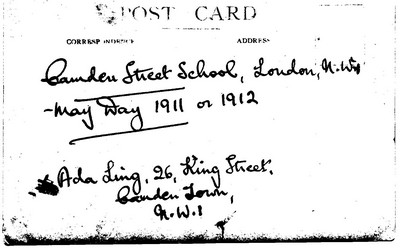 POST CARD
CORRESPONDENCE ADDRESS
Camden Street School, London, N.W.1
-May Day 1911 or 1912
Ada Ling, 26, King Street,
Camden Town,
N.W.1